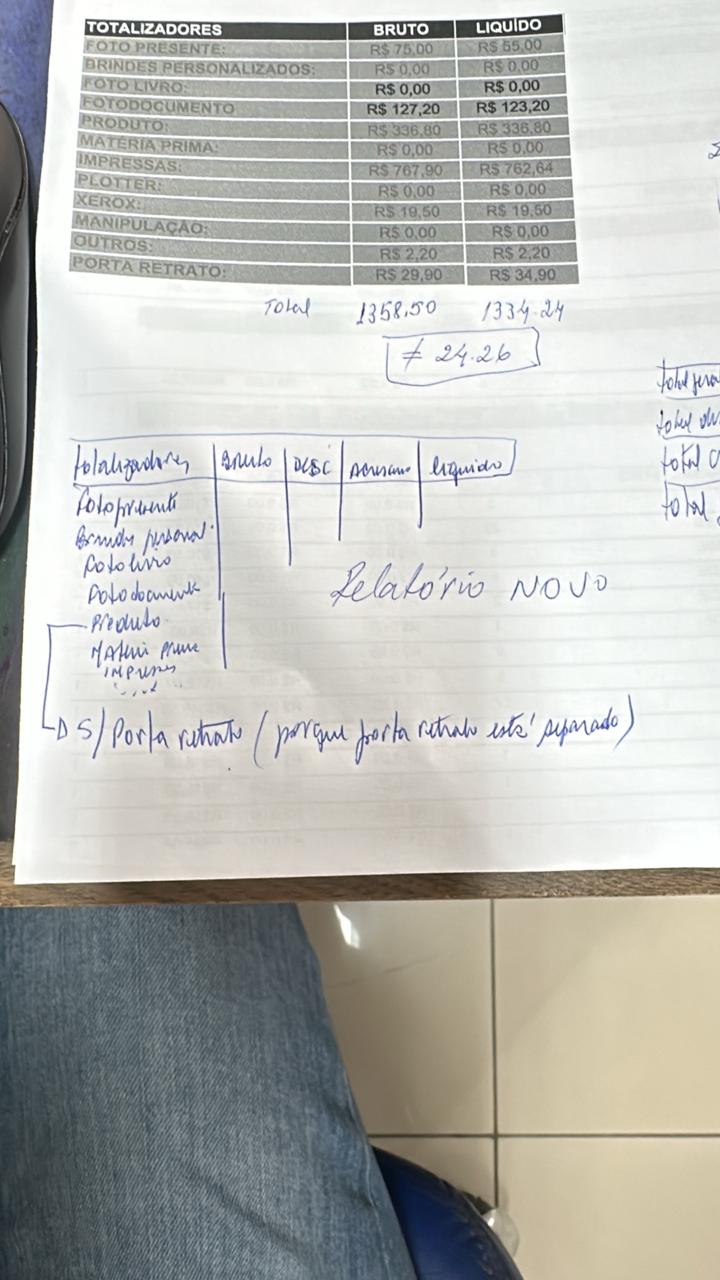 TOTALIZADORES BRUTO LIQUÍDO
FOTO PRESENTE: R$ 75,00 R$ 55,00
BRINDES PERSONALIZADOS: R$ 0,00 R$ 0,00
FOTO LIVRO: R$ 0,00 R$ 0,00
FOTODOCUMENTO R$ 127,20 R$ 123,20
PRODUTO: R$ 336,80 R$ 336,80
MATÉRIA PRIMA: R$ 0,00 R$ 0,00
IMPRESSAS: R$ 767,90 R$ 762,64
PLOTTER: R$ 0,00 R$ 0,00
XEROX: R$ 19,50 R$ 19,50
MANIPULAÇÃO: R$ 0,00 R$ 0,00
OUTROS: R$ 2,20 R$ 2,20
PORTA RETRATO: R$ 29,90 R$ 34,90
Total 1358,50 1334.24
≠ 24.26
total
total
total
total
Totalizadores Bruto DESC líquido
Foto presente
Foto livro
Foto documento
Relatório NOVO
Produto
S/ Porta retrato (porque porta retrato está separado)